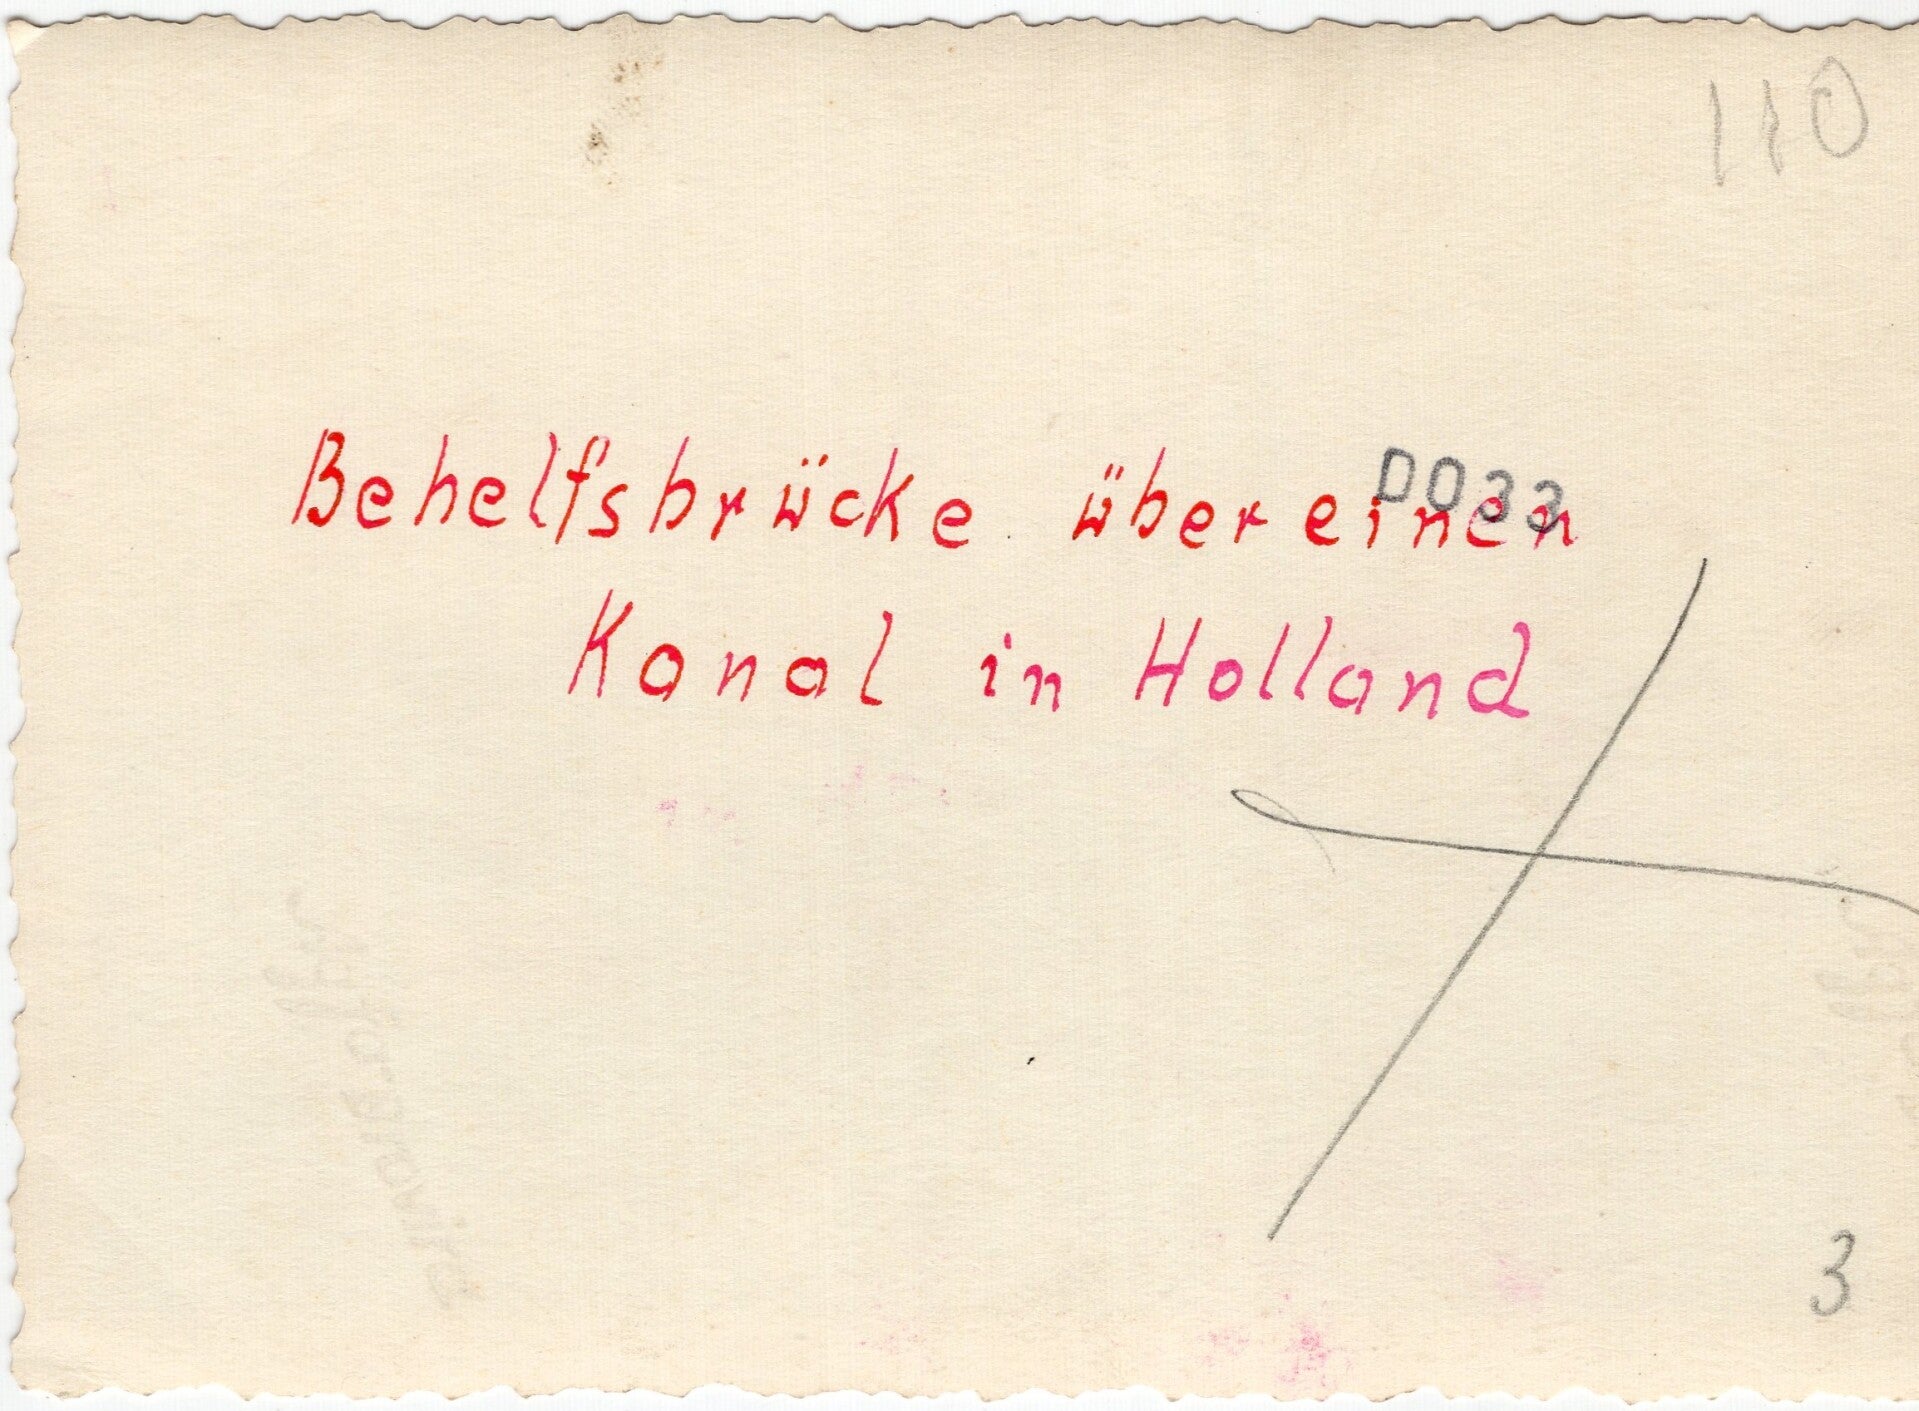 110
D033
Behelfsbrücke über einen
Kanal in Holland
3